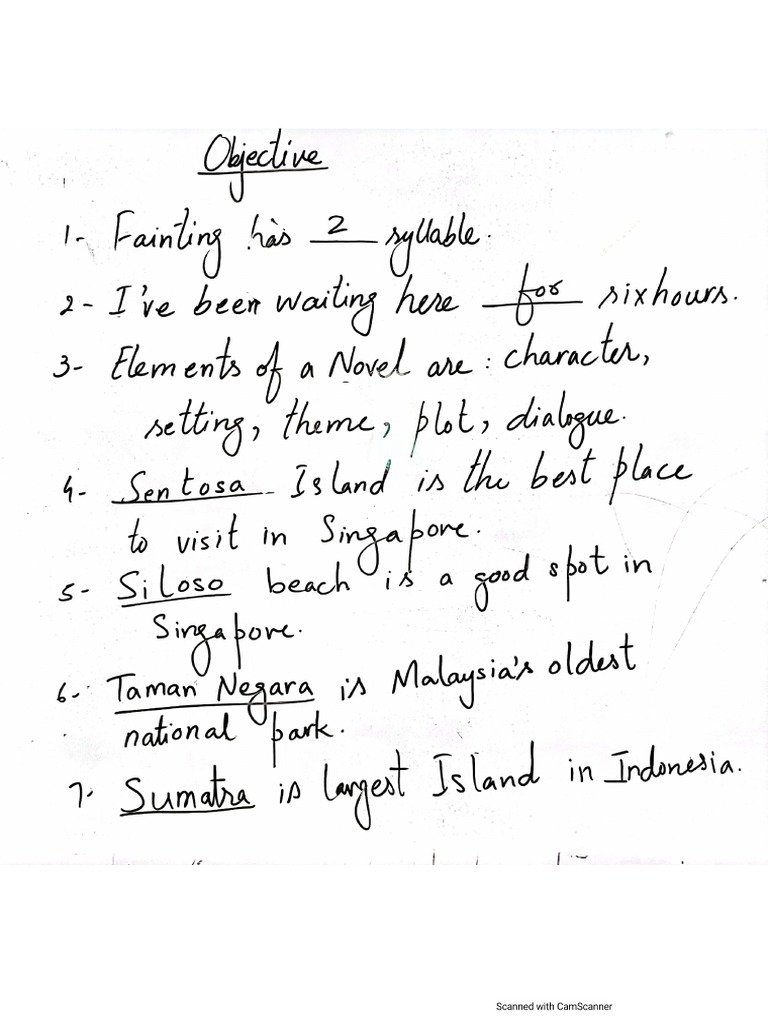 Objective
1- Fainting has 2 syllable.
2- I've been waiting here for six hours.
3- Elements of a Novel are : character,
setting, theme, plot, dialogue.
4- Sentosa Island is the best place
to visit in Singapore.
5- Siloso beach is a good spot in
Singapore.
6- Taman Negara is Malaysia's oldest
national park.
7. Sumatra is largest Island in Indonesia.
Scanned with CamScanner